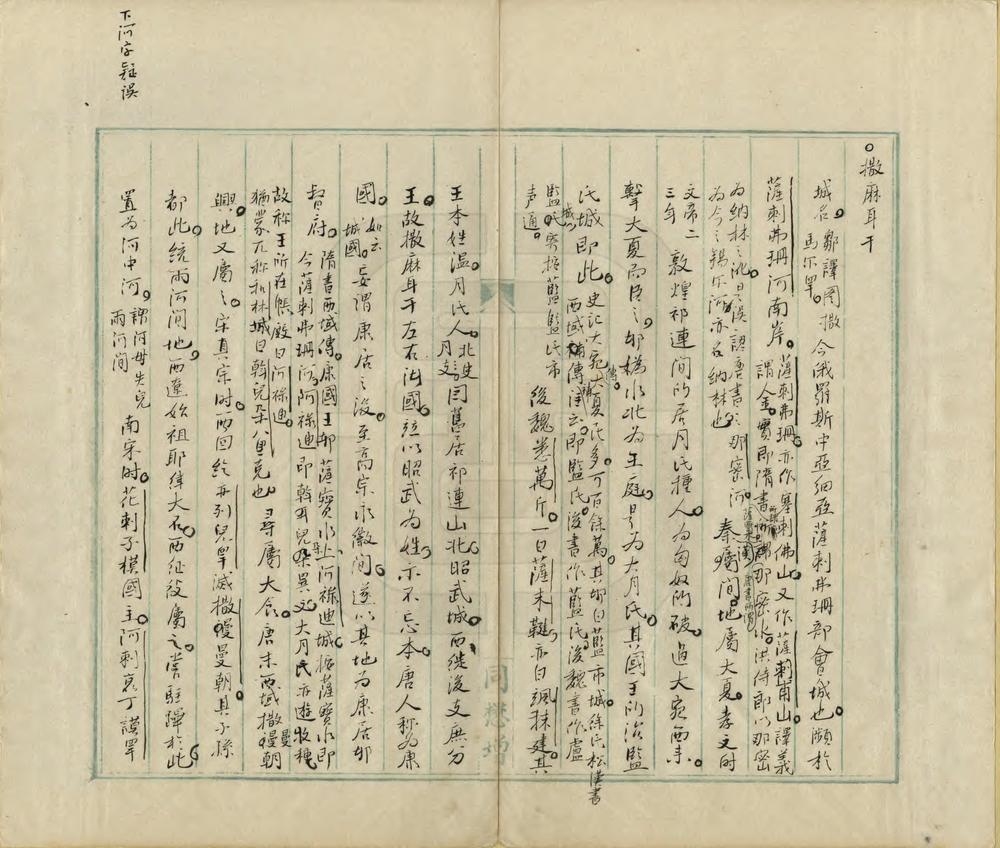 撒麻耳干
城名。鄒譯圖撒馬尔罕。今俄羅斯中亞細亞薩剌弗珊部會城也瀕於
薩剌弗珊河南岸。薩剌弗珊亦作塞剌佛山又作薩剌甫山譯義謂金。實即隋書那密水。洪侍郎以那密
為納林之訛曰誤認唐書之那密河為今之錫尔河亦名納林也 秦間地屬大夏。孝文时
文帝二三年 敦煌祁連間所居月氏種人為匈奴所破。過大宛西來
擊大夏而臣之都嬀水北為王庭號為大月氏。其國王所治監
氏城即此。史記大宛傳大夏民多可百餘萬其都曰藍市城徐氏松漢書西域傳補注云即監氏後書作藍氏後魏書作盧
監氏 藍監氏市声通。後魏悉萬斤。一曰薩末鞬亦曰颯抹建。其
王本姓温月氏人。北史月支 因舊居祁連山北昭武城。西徙後支庶分
王故撒麻耳干左右諸國。竝以昭武為姓示不忘本。唐人称為康
國。如云城國。妄謂康居之後。至高宗永徽間遂以其地為康居都
督府。隋書西域傳。康國王都薩寶水上阿祿迪城按薩寶水即今薩剌弗珊河阿祿迪即斡耳兒朶異文大月民亦遊牧種
故称王所在帳殿曰阿祿迪。猶蒙兀称和林城曰斡兒朶八里克也 尋屬大食。唐末西域撒曼朝
興地又屬之。宋真宗时西回紇再列兒罕滅撒曼朝。其子孫
都此統兩河間地西遼始祖耶律大石西征役屬之。常駐蹕於此
置為河中河。謂阿母失兒兩河間 南宋时。花剌子模國主阿剌哀丁謨罕
下河字疑误
同懋